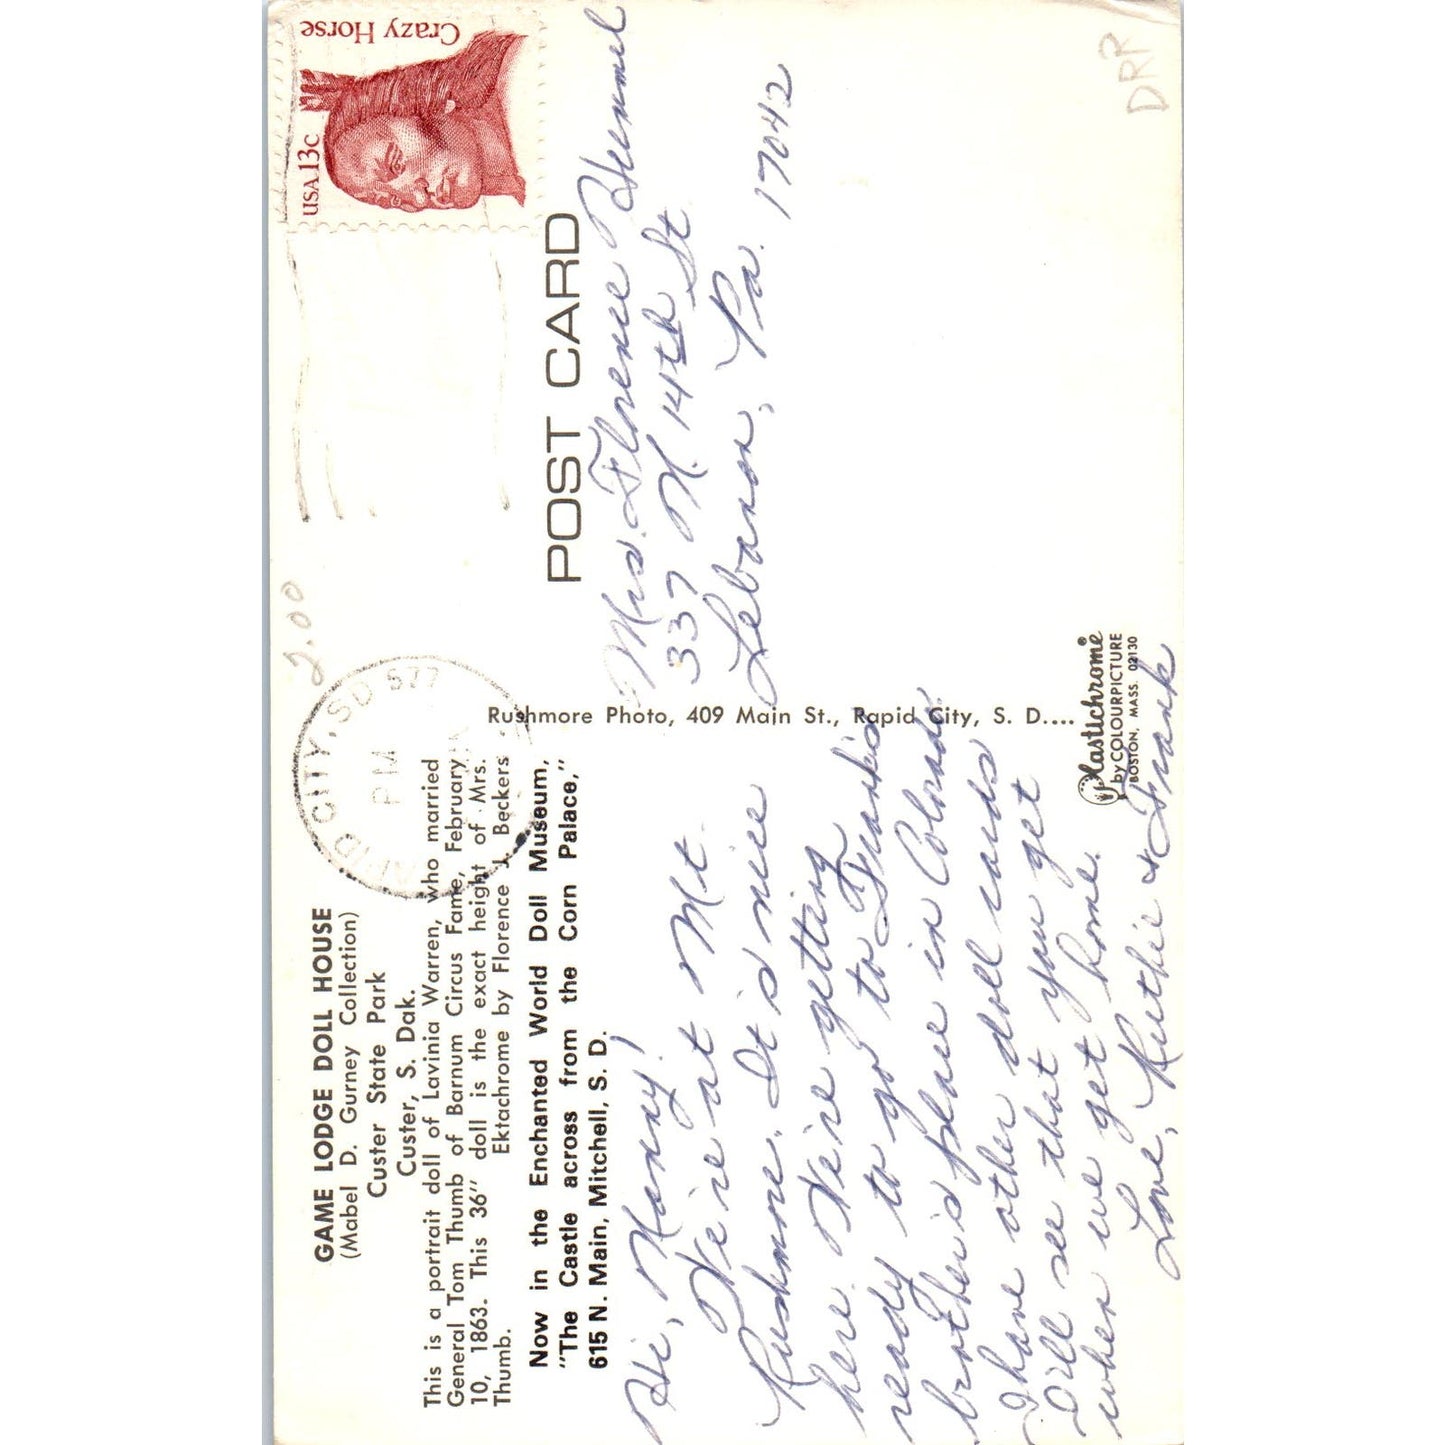 GAME LODGE DOLL HOUSE
(Mabel D. Gurney Collection)
Custer State Park
Custer, S. Dak.
This is a portrait doll of Lavinia Warren, who married
General Tom Thumb of Barnum Circus Fame, February
10, 1863. This 36" doll is the exact height of Mrs.
Thumb. Ektachrome by Florence J. Beckers
Now in the Enchanted World Doll Museum,
"The Castle across from the Corn Palace,"
615 N. Main, Mitchell, S. D.
Hi, Nanny!
We're at Mt.
Rushmore. It is nice
here. We're getting
ready to go to Frank's
brother's place in Colorado.
I have other doll cards
I'll see that you get
when we get home.
Love, Ruthie & Frank
Rushmore Photo, 409 Main St., Rapid City, S. D....
Plastichrome®
by COLOURPICTURE
BOSTON, MASS. 02130
2.00
RAPID CITY, SD 577
PM
USA 13c
Crazy Horse
POST CARD
Mrs. Florence Hummel
337 N. 14th St
Lebanon, Pa. 17042
DRP